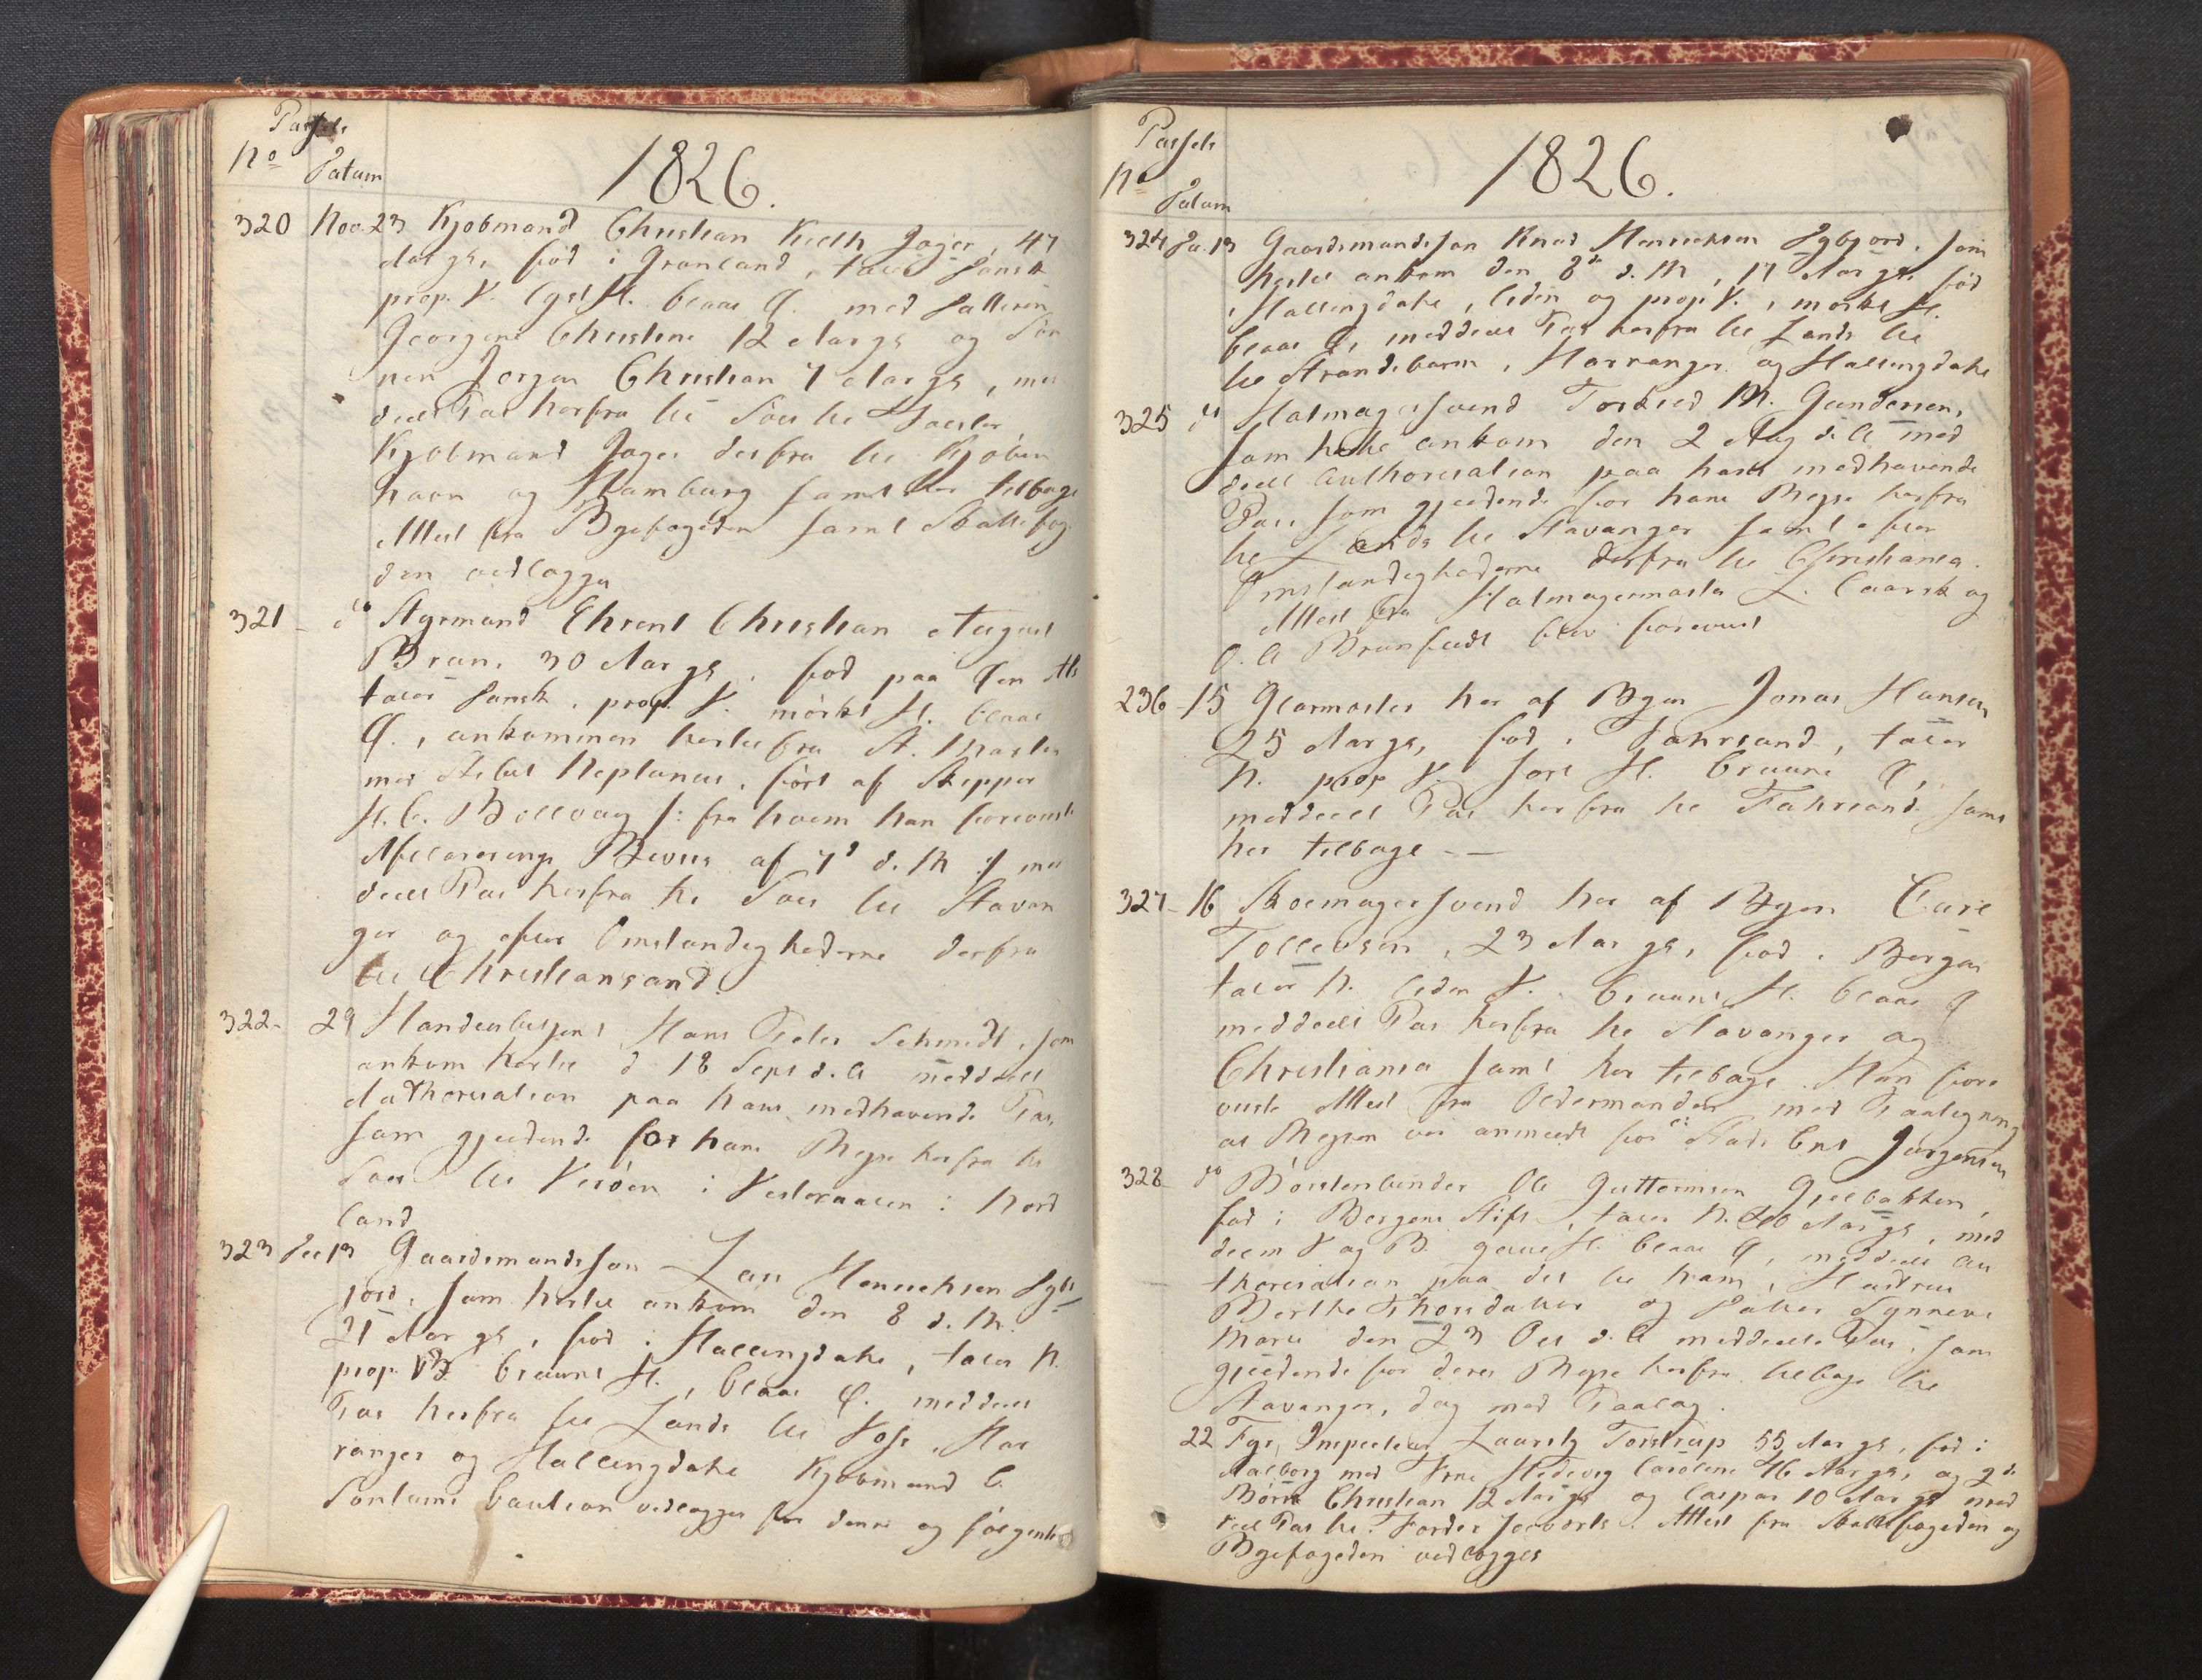 Passets
No Datum
1826.
320 Nov. 23 Kjøbmand Christian Kieth Jager, 47
Aar gl, fød i Grønland, taler Dansk
prop. V. lyst H. blaae Ø. med Datteren
Georgine Christine 12 Aar gl og Søn
nen Jørgen Christian 7 Aar gl, med
deelt Pas herfra til Søes til
Kjøbmand Jager derfra til Kjøben
havn og Hamburg samt her tilbage
Attest fra Byefogeden samt Skattefog
den vedlægges
321 - do Styrmand Ehrent Christian August
Brun, 30 Aar gl, fød paa Øen Als
taler Dansk, prop. V. mørkt H. blaae
Ø., ankommen hertil fra St. Martin
med Skibet Neptunus, ført af Skipper
H. C. Bellvag /: fra hvem han foreviiste
Afskedigings Beviis af 7d d. M :/ med
deelt Pas herfra til Søes til Stavan
ger og efter Omstændighederne derfra
til Christiansand.
322 - 29 Handelsbetjent Hans Peder Schmidt, som
ankom hertil d 18 Sept d. A meddeelt
Authorisation paa hans medhavende Pas,
som gjældende for hans Reise herfra til
Søes til i Vesteraalen i Nord
land
323 Dec 13 Gaardmandssøn Lars Henrichsen Dybs
jord, som hertil ankom den 8 d. M.
21 Aar gl, fød i Hallingdahl, taler N.
prop. V. bruunt H., blaae Ø. meddeelt
Pas herfra til Lands til Voss, Har
ranger og Hallingdahl Kjøbmand C.
Sontums Caution vedlægges for denne og følgende
Passets
No Datum
1826.
324 De. 13 Gaardmandssøn Knud Henrichsen Dybsjord, som
hertil ankom den 8de d. M, 17 Aar gl, fød
i Hallingdahl, liden og prop V., mørkt H.
blaae Ø, meddeelt Pas herfra til Lands til
til Strandebarm, Harranger og Hallingdahl
325 do Hatmagersvend Torkild M. Gundersen,
som hertil ankom den 2 Aug d. A med
deelt Authorisation paa hans medhavende
Pas, som gjældende for hans Reise herfra
til Lands til Stavanger samt efter
Omstændighederne derfra til Christiania.
Attest fra Hatmagermester L. Claarsk og
O. A Brunfeldt blev foreviist
236 - 15 Glarmester her af Byen Jonas Hansen
25 Aar gl, fød i Fahrsund, taler
N. prop V. sort H. bruune Ø,
meddeelt Pas herfra til Fahrsund samt
her tilbage - —
327 - 16 Skoemagersvend her af Byen Carl
Tollevsen, 23 Aar gl, fød i Bergen
taler N. liden V. bruunt H. blaae Ø
meddeelt Pas herfra til Stavanger og
Christiania samt her tilbage. Han fore
viiste Attest fra Oldermanden med Paategning
at Reisen var anmeldt for Stads Cpt Jürgensen
328 - do Børstenbinder Ole Guttormsen Gjelbakken,
fød i Bergens Stift, taler N. 40 Aar gl, mid
delm V og B. guult H. blaae Ø, meddeelt Au
thorisation paa det til ham, Hustrue
Berthe Thorsdatter og Datter Synneve
Marie den 23 Oct d. A meddeelte Pas, som
gjældende for deres Reise herfra tilbage til
Stavanger, dog med Paalæg.
22 Fyr Inspecteur Laurits Torstrup 55 Aar gl, fød i
Aalborg med Kone Hedevig Caroline 46 Aar gl, og 2de
Børn Christian 12 Aar gl og Caspar 10 Aar gl med
deelt Pas til . Attest fra Skattefogeden og
Byefogeden vedlægges